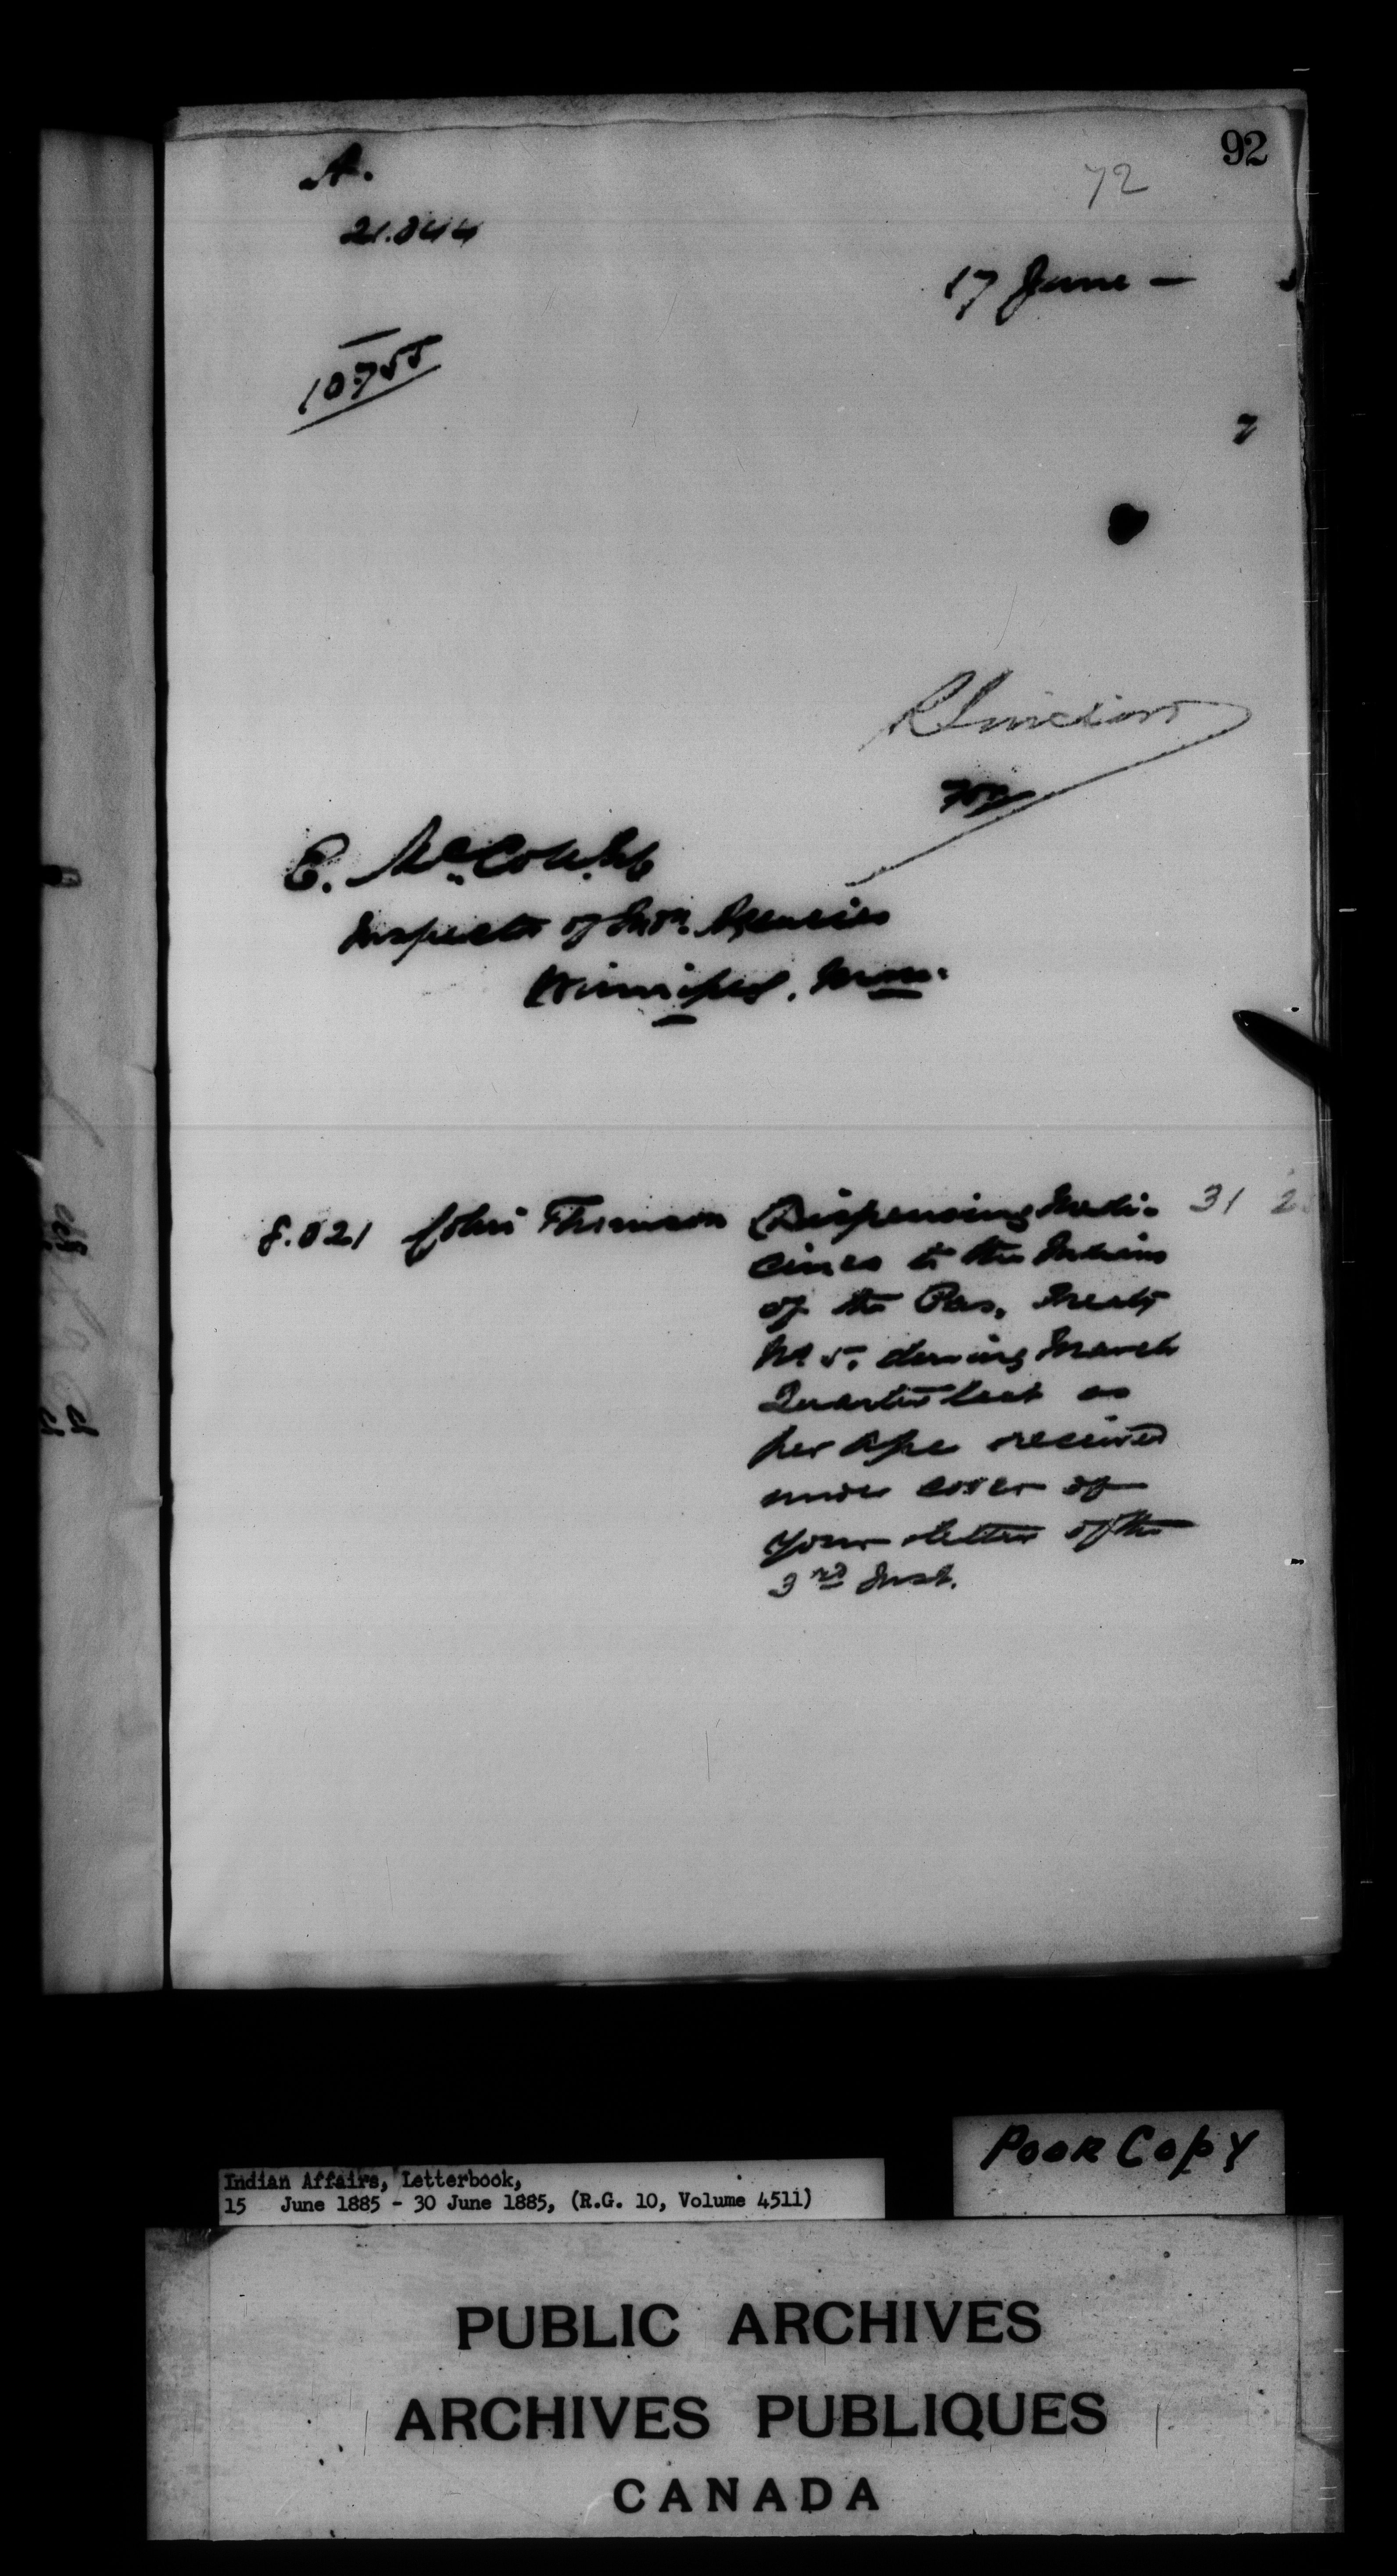 92
72
A.
21.044
17 June —
10755
R Sinclair
for
E. McColl, Esq
Inspector of Indn. Agencies
Winnipeg, Man.
8.021 John Thomson Dispensing Medi- 31
cines to the Indians
of the Pas, Treaty
No 5, during March
Quarter last as
per a/c received
under cover of
your letter of the
3rd Inst.
Poor Copy
Indian Affairs, Letterbook,
15 June 1885 - 30 June 1885, (R.G. 10, Volume 4511)
PUBLIC ARCHIVES
ARCHIVES PUBLIQUES
CANADA